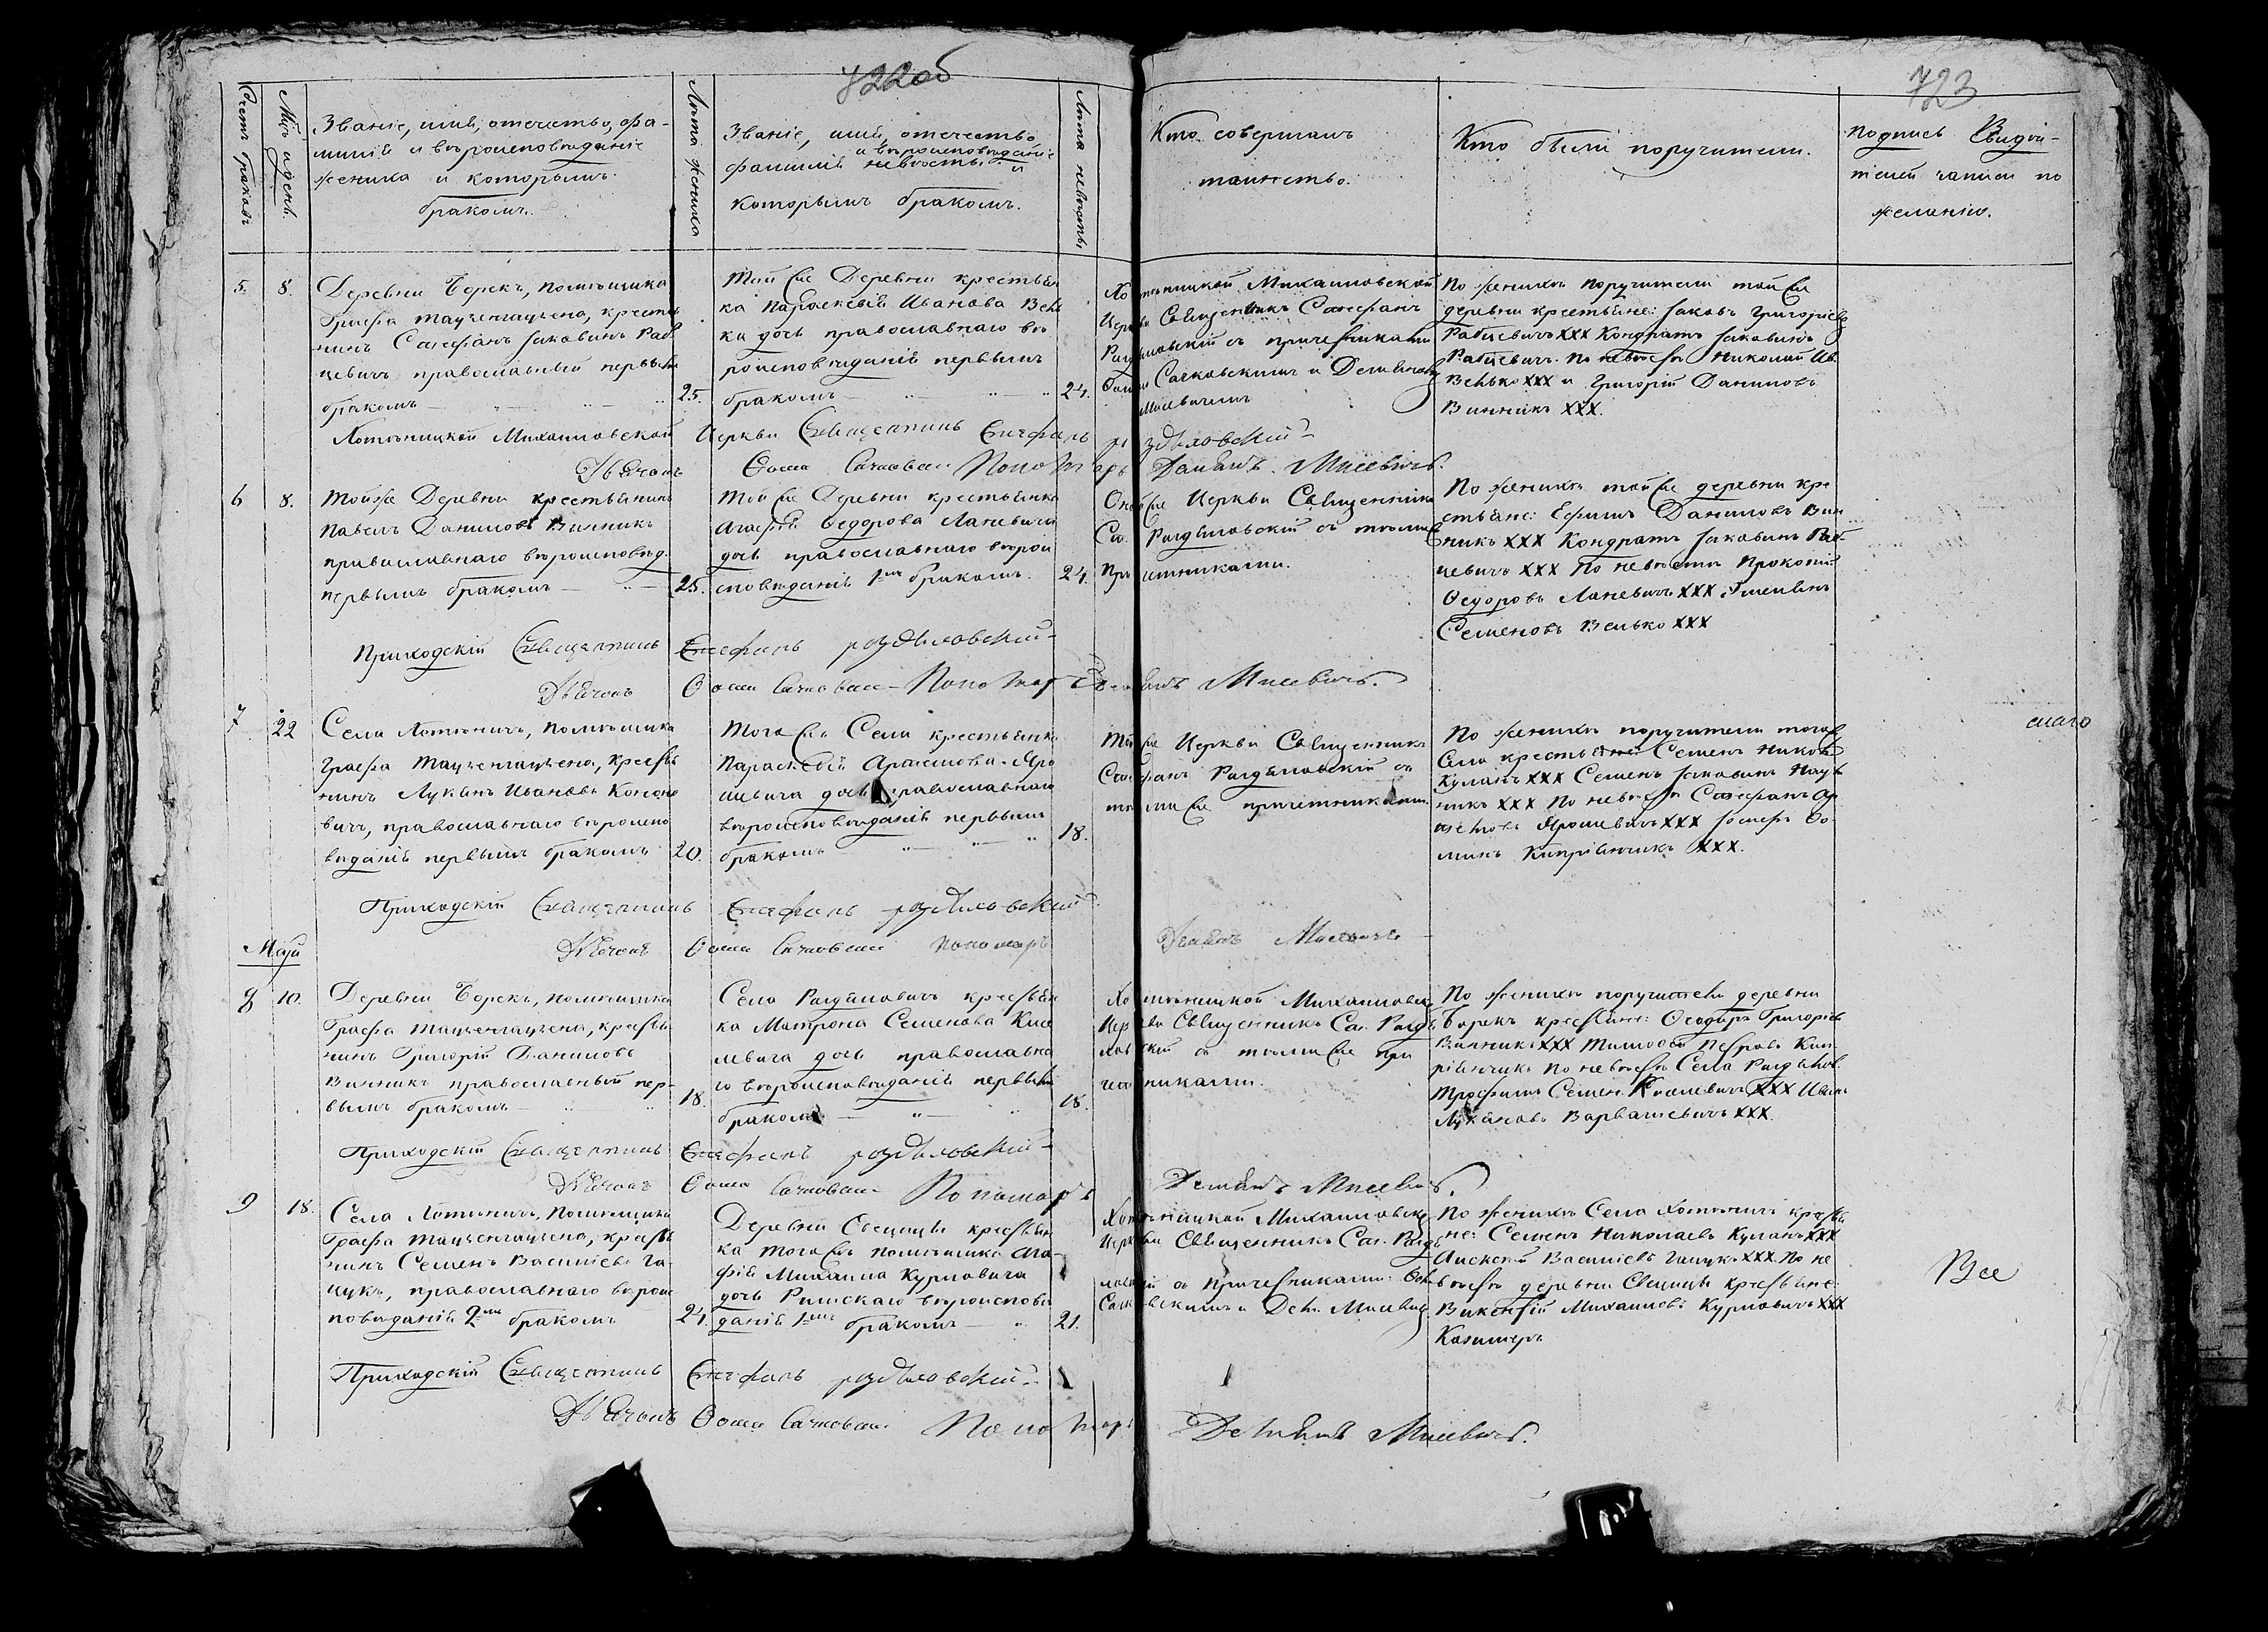 722об
723
Счетъ браковъ
Мцъ и день.
Званіе, имя, отечество, фа-
милія и вѣроисповѣданіе
жениха и которымъ
бракомъ.
Лѣта жениха
Званіе, имя, отечество
и вѣроисповѣданіе
фамилія невѣсты и
которымъ бракомъ.
Лѣта невѣсты
Кто совершалъ
таинство.
Кто были поручители.
Подпись Свидѣ-
телей записи по
желанію.
5. 8.
Деревни Борекъ, помѣщика
Графа крестья
нинъ Стефанъ Іаковинъ Раб
цевичъ православный первымъ
бракомъ
25.
Той же Деревни крестьян
ка Параскевія Иванова Вень
ка дочь православнаго вѣ
роисповѣданія первымъ
бракомъ
24.
Хотѣницкой Михаиловской
Церкви Священникъ Стефанъ
съ причетниками
Фомою Сачковскимъ и Деміаномъ
Мисевичемъ
По женихѣ поручители той же
деревни крестьяне: Іаковъ Григорьевъ
Рабцевичъ ХХХ Кондратъ Іаковинъ
Рабцевичъ. По невѣстѣ Николай Ив.
Венько ХХХ и Григорій Даниловъ
Винникъ ХХХ.
Хотѣницкой Михаиловской Церкви Священникъ Стефанъ
Дьячокъ Фома Сачковскій Пономарь Даміанъ Мисевичъ.
6 8.
Той же Деревни крестьянинъ
Павелъ Даниловъ Винникъ
православнаго вѣроисповѣд.
первымъ бракомъ
25.
Той же Деревни крестьянка
Агафія Федорова Ланевича
дочь православнаго вѣрои
сповѣданія 1мъ бракомъ.
24.
Оной же Церкви Священникъ
Ст. съ тѣми же
Причетниками.
По женихѣ той же деревни кре
стьяне: Ефимъ Даниловъ Вин
никъ ХХХ Кондратъ Іаковинъ Раб
цевичъ ХХХ По невѣстѣ Прокопій
Федоровъ Ланевичъ ХХХ Емельянъ
Семеновъ Велько ХХХ
Приходскій Священникъ Стефанъ
Дьячокъ Фома Сачковскій Пономарь Даміанъ Мисевичъ.
7 22
Села Хотѣничъ, помѣщика
Графа крестья
нинъ Лукьянъ Ивановъ Кононо
вичъ, православнаго вѣроиспо
вѣданія первымъ бракомъ
20.
Того же Села крестьянка
Параскевія Артемова Яро
шевича дочь православнаго
вѣроисповѣданія первымъ
бракомъ
18.
Той же Церкви Священникъ
Стефанъ съ
тѣми же причетниками.
По женихѣ поручители того же
Села крестьяне: Семенъ Никол.
Куланъ ХХХ Семенъ Іаковинъ
никъ ХХХ По невѣстѣ Стефанъ Ар
темовъ Ярошевичъ ХХХ Іосифъ Фо
минъ Кипріянчикъ ХХХ.
Приходскій Священникъ Стефанъ
Дьячокъ Фома Сачковскій Пономарь Деміянъ Мисевичъ
Май
8 10.
Деревни Борекъ, помѣщика
Графа крестья
нинъ Григорій Даниловъ
Винникъ православный пер-
вымъ бракомъ
18.
Села крестьян
ка Матрона Семенова Кисе
левича дочь православна
го вѣроисповѣданія первымъ
бракомъ
18.
Хотѣницкой Михаиловской
Церкви Священникъ Ст.
съ тѣми же при
четниками.
По женихѣ поручители деревни
Борекъ крестьяне: Феодоръ Григорьевъ
Винникъ ХХХ Тимофей Петровъ Кип
ріянчикъ По невѣстѣ Села
Трофимъ Семен. Киселевичъ ХХХ Иванъ
Лукьяновъ Варвашевичъ ХХХ
Приходскій Священникъ Стефанъ
Дьячокъ Фома Сачковскій Пономарь Деміанъ Мисевичъ.
9 18.
Села Хотѣничъ, Помѣщика
Графа крестья
нинъ Семенъ Василіевъ Га-
цукъ, православнаго вѣроис
повѣданія 2мъ бракомъ
24.
Деревни Свеницы крестьян
ка того же помѣщика Ага-
фія Михаила Курловича
дочь Римскаго вѣроисповѣ
данія 1мъ бракомъ
21.
Хотѣницкой Михаиловской
Церкви Священникъ Ст.
съ причетниками: Фом.
Сачковскимъ и Дем. Мисевич.
По женихѣ Села Хотѣничъ крестья
не: Семенъ Николаевъ Куланъ ХХХ
Алексей Василіевъ Гацукъ ХХХ. По не
вѣстѣ деревни Свеницы крестьяне:
Викентій Михаиловъ Курловичъ ХХХ
Казимеръ
Все
Приходскій Священникъ Стефанъ
Дьячокъ Фома Сачковскій Пономарь Деміянъ Мисевичъ.